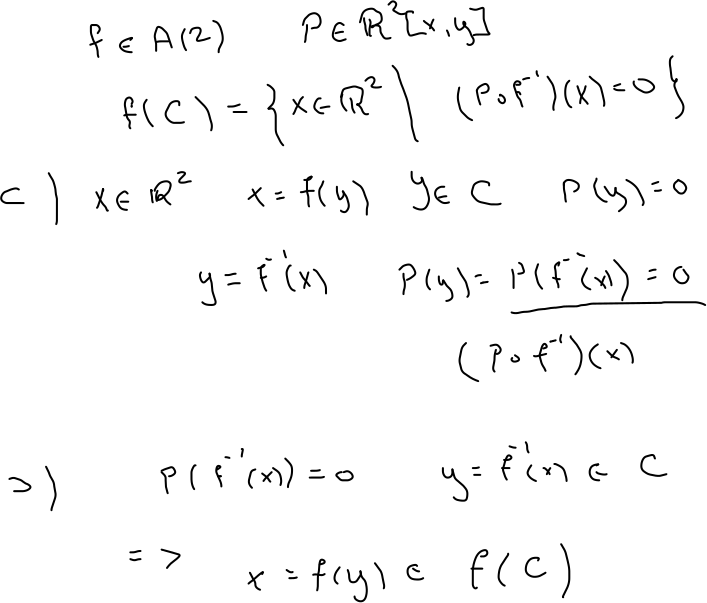 f ∈ A(2) P ∈ ℝ²[x,y]
f(C) = { x ∈ ℝ² | (P∘f⁻¹)(x) = 0 }
⊂) x ∈ ℝ² x = f(y) y ∈ C P(y) = 0
y = f⁻¹(x) P(y) = P(f⁻¹(x)) = 0
(P∘f⁻¹)(x)
⊃) P(f⁻¹(x)) = 0 y = f⁻¹(x) ∈ C
=> x = f(y) ∈ f(C)